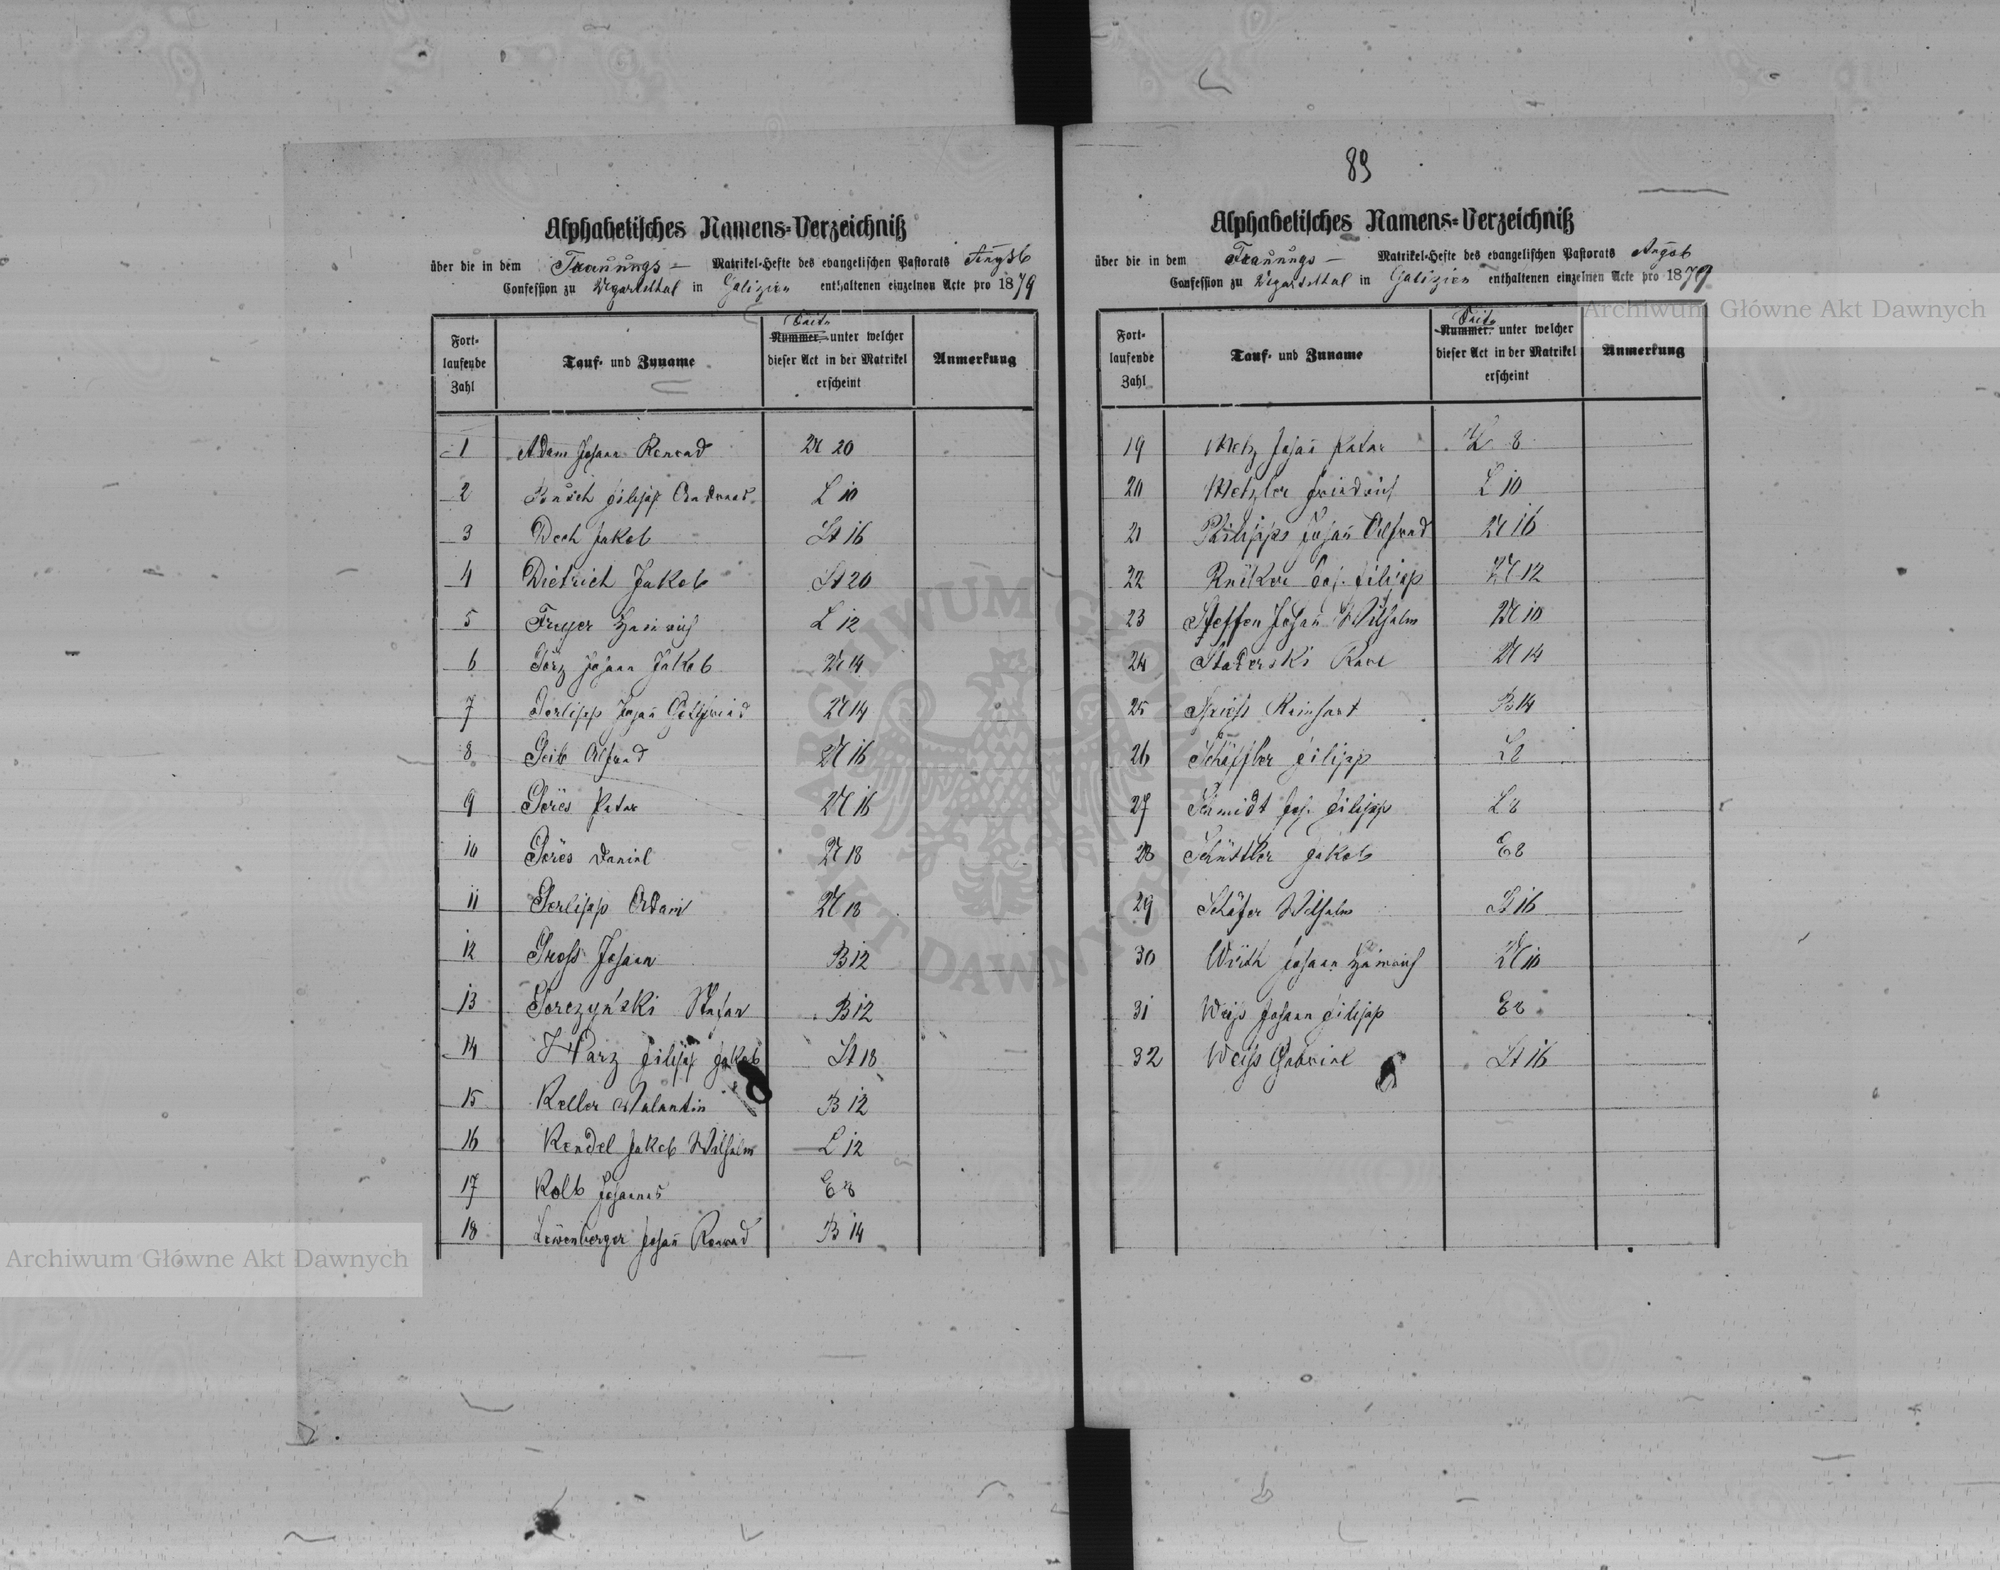 89
Alphabetisches Namens-Verzeichniß
über die in dem Trauungs- Matrikel-Hefte des evangelischen Pastorats Augsb
Confession zu Ugartsthal in Galizien enthaltenen einzelnen Acte pro 1879
Fort-
laufende
Zahl
Tauf- und Zuname
Seite
Nummer unter welcher
dieser Act in der Matrikel
erscheint
Anmerkung
1 Adam Johann Konrad U 20
2 Busch Filipp Andreas L 10
3 Dech Jakob St 16
4 Dietrich Jakob St 20
5 Freyer Heinrich L 12
6 Görz Johann Jakob U 14
7 Gerlipp Johan̄ Gottfried U 14
8 Geib Alfred U 16
9 Göres Peter U 16
10 Göres Daniel U 18
11 Gerlipp Adam U 18
12 Gross Johann B 12
13 Gorczyński Stefan B 12
14 Harz Filipp Jakob St 18
15 Keller Valentin B 12
16 Kendel Jakob Wilhelm L 12
17 Kolb Johannes E 8
18 Löwenberger Johan̄ Konrad B 14
Alphabetisches Namens-Verzeichniß
über die in dem Trauungs- Matrikel-Hefte des evangelischen Pastorats Augsb
Confession zu Ugartsthal in Galizien enthaltenen einzelnen Acte pro 1879
Fort-
laufende
Zahl
Tauf- und Zuname
Seite
Nummer unter welcher
dieser Act in der Matrikel
erscheint
Anmerkung
19 Metz Johan̄ Peter U 8
20 Metzler Friedrich L 10
21 Philipps Johan̄ Alfred U 16
22 Joh. Filipp U 12
23 Steffen Johan̄ Wilhelm U 10
24 Karl U 14
25 Spiess Reinhart B 14
26 Schäffler Filipp L 8
27 Schmidt Joh. Filipp L 8
28 Schüttler Jakob E 8
29 Schäfer Wilhelm St 16
30 Wirth Johann Heinrich U 10
31 Weiss Johann Filipp E 8
32 Weiss Gabriel St 16
Archiwum Główne Akt Dawnych
Archiwum Główne Akt Dawnych
ARCHIWUM GŁÓWNE AKT DAWNYCH